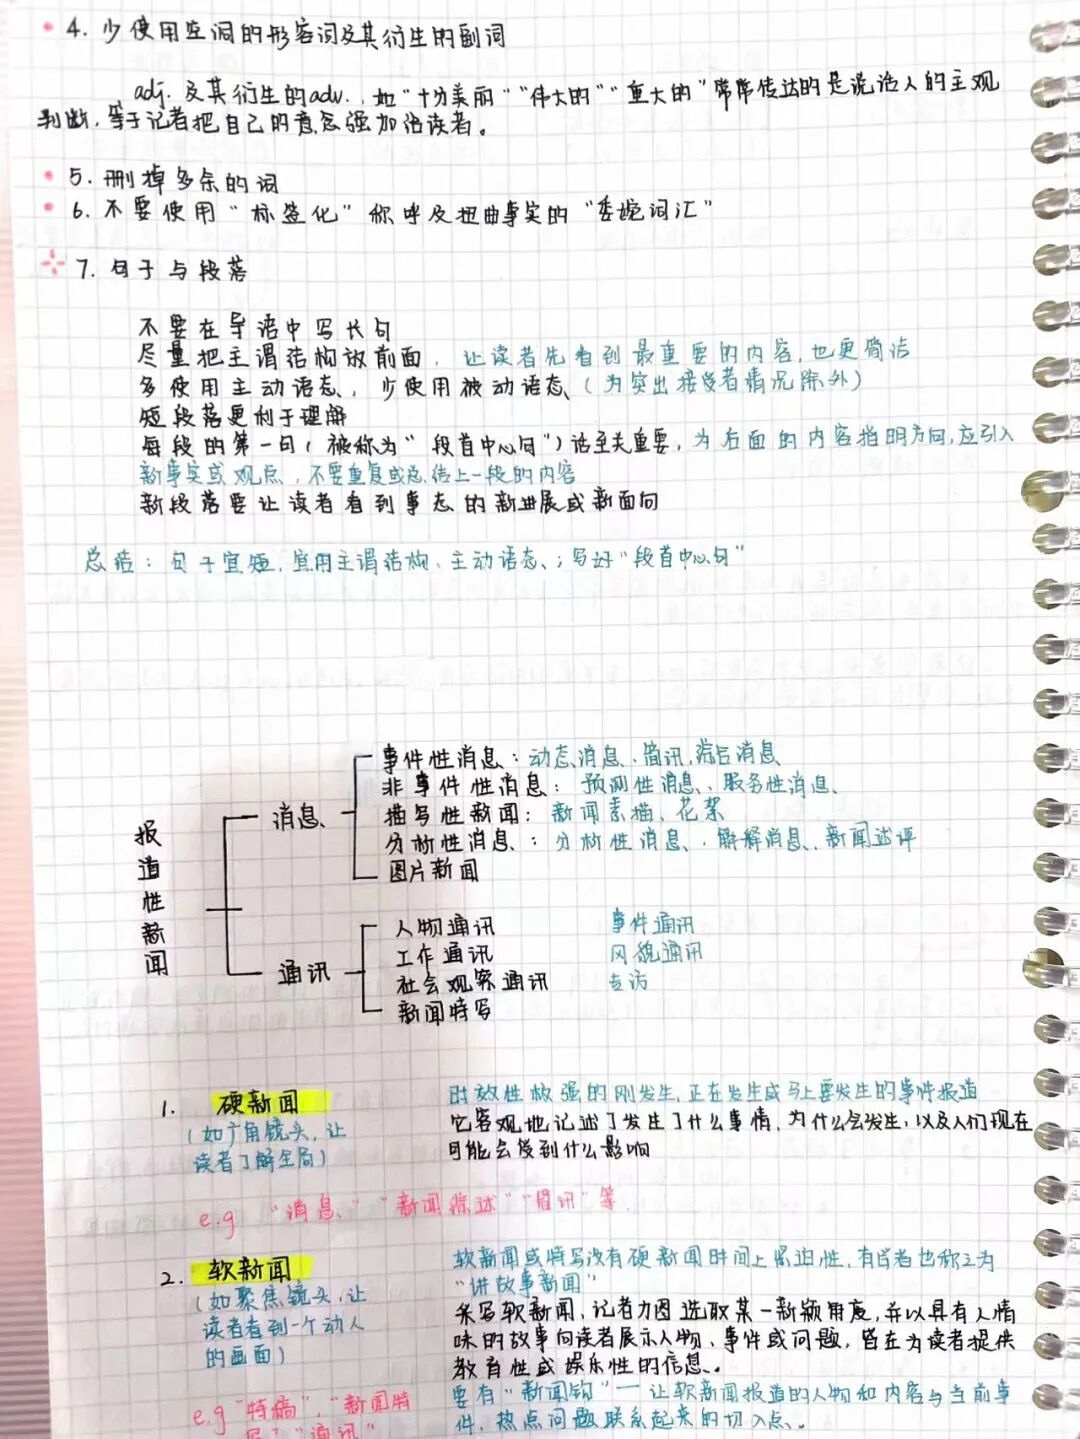 4. 少使用空洞的形容词及其衍生的副词
adj. 及其衍生的adv.,如“十分美丽”“伟大的”“重大的”常常传达的是说话人的主观
判断,等于记者把自己的意念强加给读者。
5. 删掉多余的词
6. 不要使用“标签化”称呼及扭曲事实的“委婉词汇”
7. 句子与段落
不要在导语中写长句
尽量把主谓结构放前面,让读者先看到最重要的内容,也更简洁
多使用主动语态,少使用被动语态(为突出接受者情况除外)
短段落更利于理解
每段的第一句(被称为“段首中心句”)话至关重要,为后面的内容指明方向,应引入
新事实或观点,不要重复或总结上一段的内容
新段落要让读者看到事态的新进展或新面向
总结:句子宜短,宜用主谓结构、主动语态;写好“段首中心句”
报道性新闻
消息
事件性消息:动态消息、简讯、综合消息
非事件性消息:预测性消息、服务性消息
描写性新闻:新闻素描、花絮
分析性消息:分析性消息、解释消息、新闻述评
图片新闻
通讯
人物通讯 事件通讯
工作通讯 风貌通讯
社会观察通讯 专访
新闻特写
1. 硬新闻
(如广角镜头,让
读者了解全局)
时效性极强的刚发生,正在发生或马上要发生的事件报道
它客观地记述了发生了什么事情,为什么会发生,以及人们现在
可能会受到什么影响
e.g “消息”“新闻综述”“简讯”等
2. 软新闻
(如聚焦镜头,让
读者看到一个动人
的画面)
软新闻或特写没有硬新闻时间上紧迫性,有学者也称之为
“讲故事新闻”
采写软新闻,记者力图选取某一新颖角度,并以具有人情
味的故事向读者展示人物、事件或问题,皆在为读者提供
教育性或娱乐性的信息。
要有“新闻钩”——让软新闻报道的人物和内容与当前事
件,热点问题联系起来的切入点。
e.g “特稿”,“新闻特
写”“通讯”